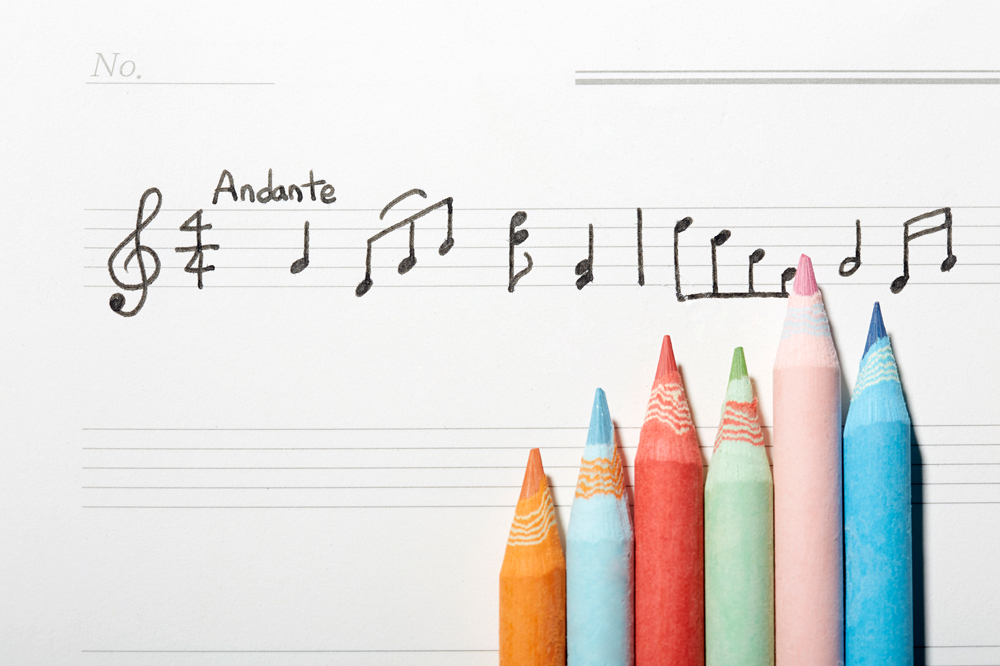 No.
Andante
4
4